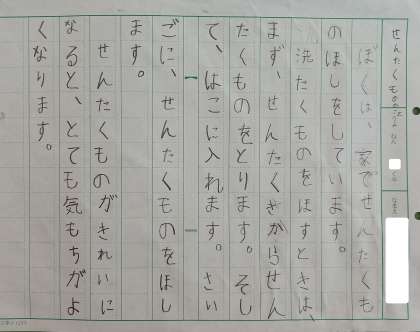 せんたくもの
ぼくは、家でせんたくも
のほしをしています。
洗たくものをほすときは、
まず、せんたくきからせん
たくものをとります。そし
て、はこに入れます。さい
ごに、せんたくものをほし
ます。
せんたくものがきれいに
なると、とても気もちがよ
くなります。